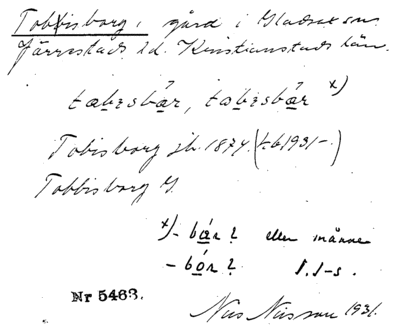 Tobbisborg, gård i Gladsax sn
Järrestads hd. Kristianstads län.
tæbisbår, tæbisbår x)
Tobisborg jb. 1874. (
Tobbisborg G.
x) - bår? eller månne
- bór?
Nr 5463.
Nils Nilsson 1931.